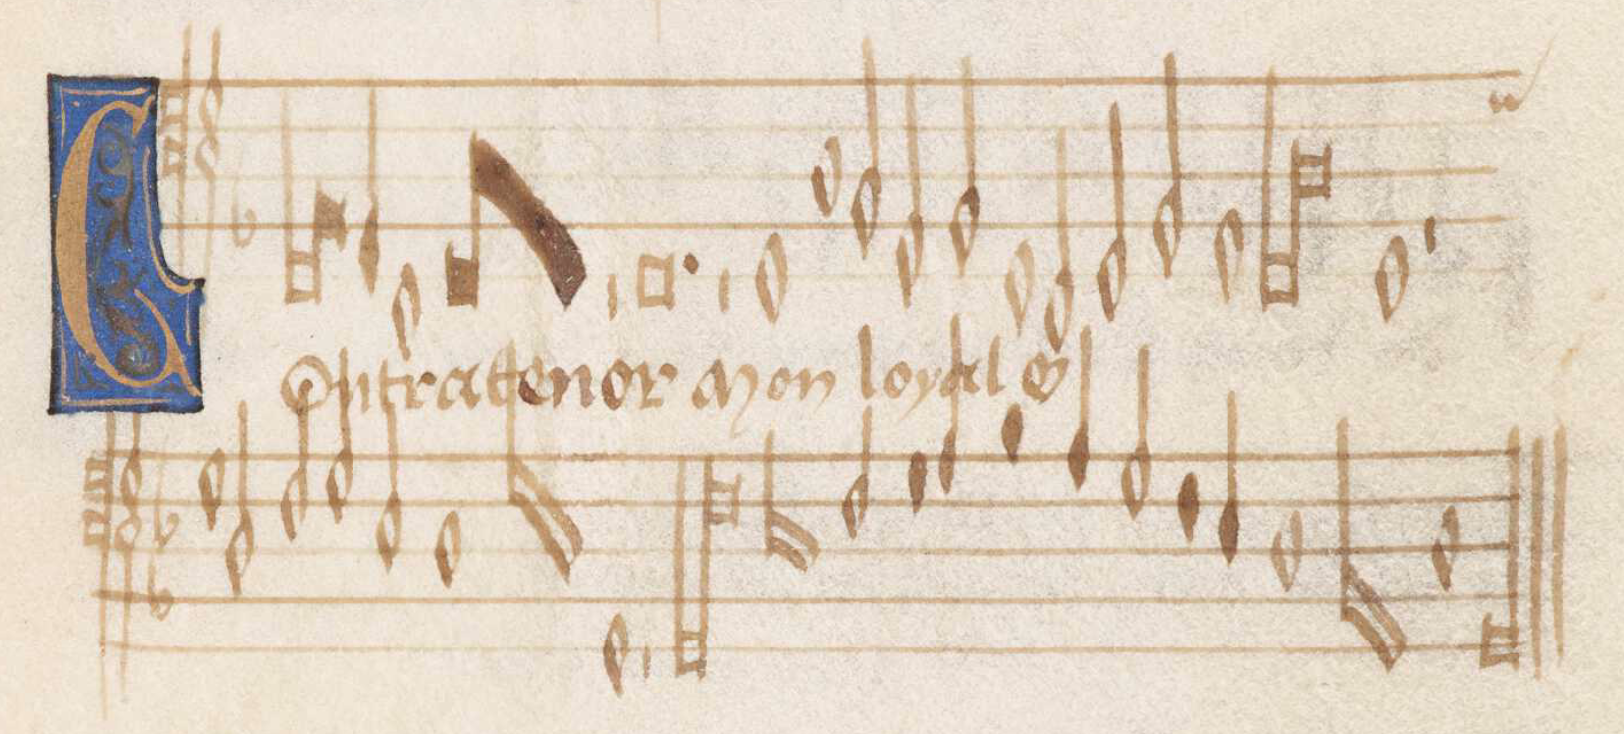 Contratenor Mon loyal &